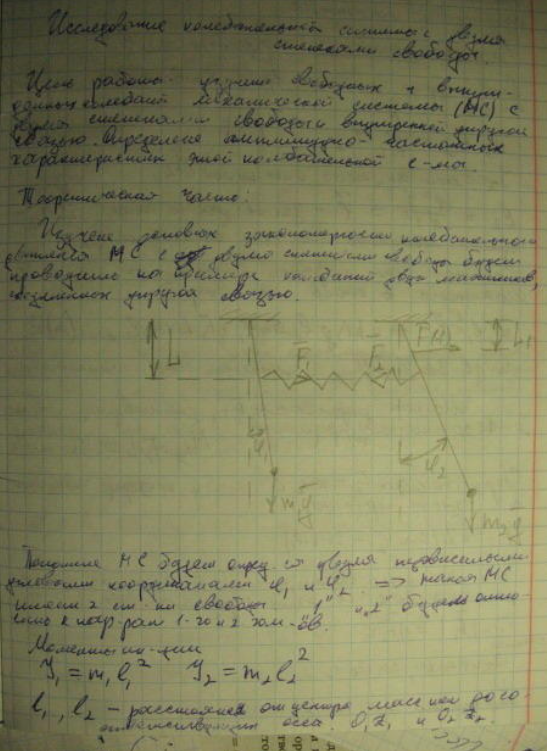 Исследование колебательной системы с двумя
степенями свободы.
Цель работы: изучение свободных и вынуж-
денных колебаний механической системы (МС) с
двумя степенями свободы и внутренней упругой
связью. Определение амплитудно-частотных
характеристик этой колебательной с-мы.
Теоретическая часть:
Изучение основных закономерностей колебательного
движения МС с двумя степенями свободы будем
проводить на примере колебаний двух маятников,
соединенных упругой связью.
L F₁ F₂ F(t) L₁
φ₁ φ₂
m₁g m₂g
Положение МС будем опред-ся двумя независимыми
угловыми координатами φ₁ и φ₂ => такая МС
имеет 2 ст-ни свободы. "1" и "2" будем отно-
сить к 1-го и 2
Моменты ин-ции
J₁ = m₁l₁² J₂ = m₂l₂²
l₁, l₂ – расстояния от центра масс до
оси O₁Z₁ и O₂Z₂.